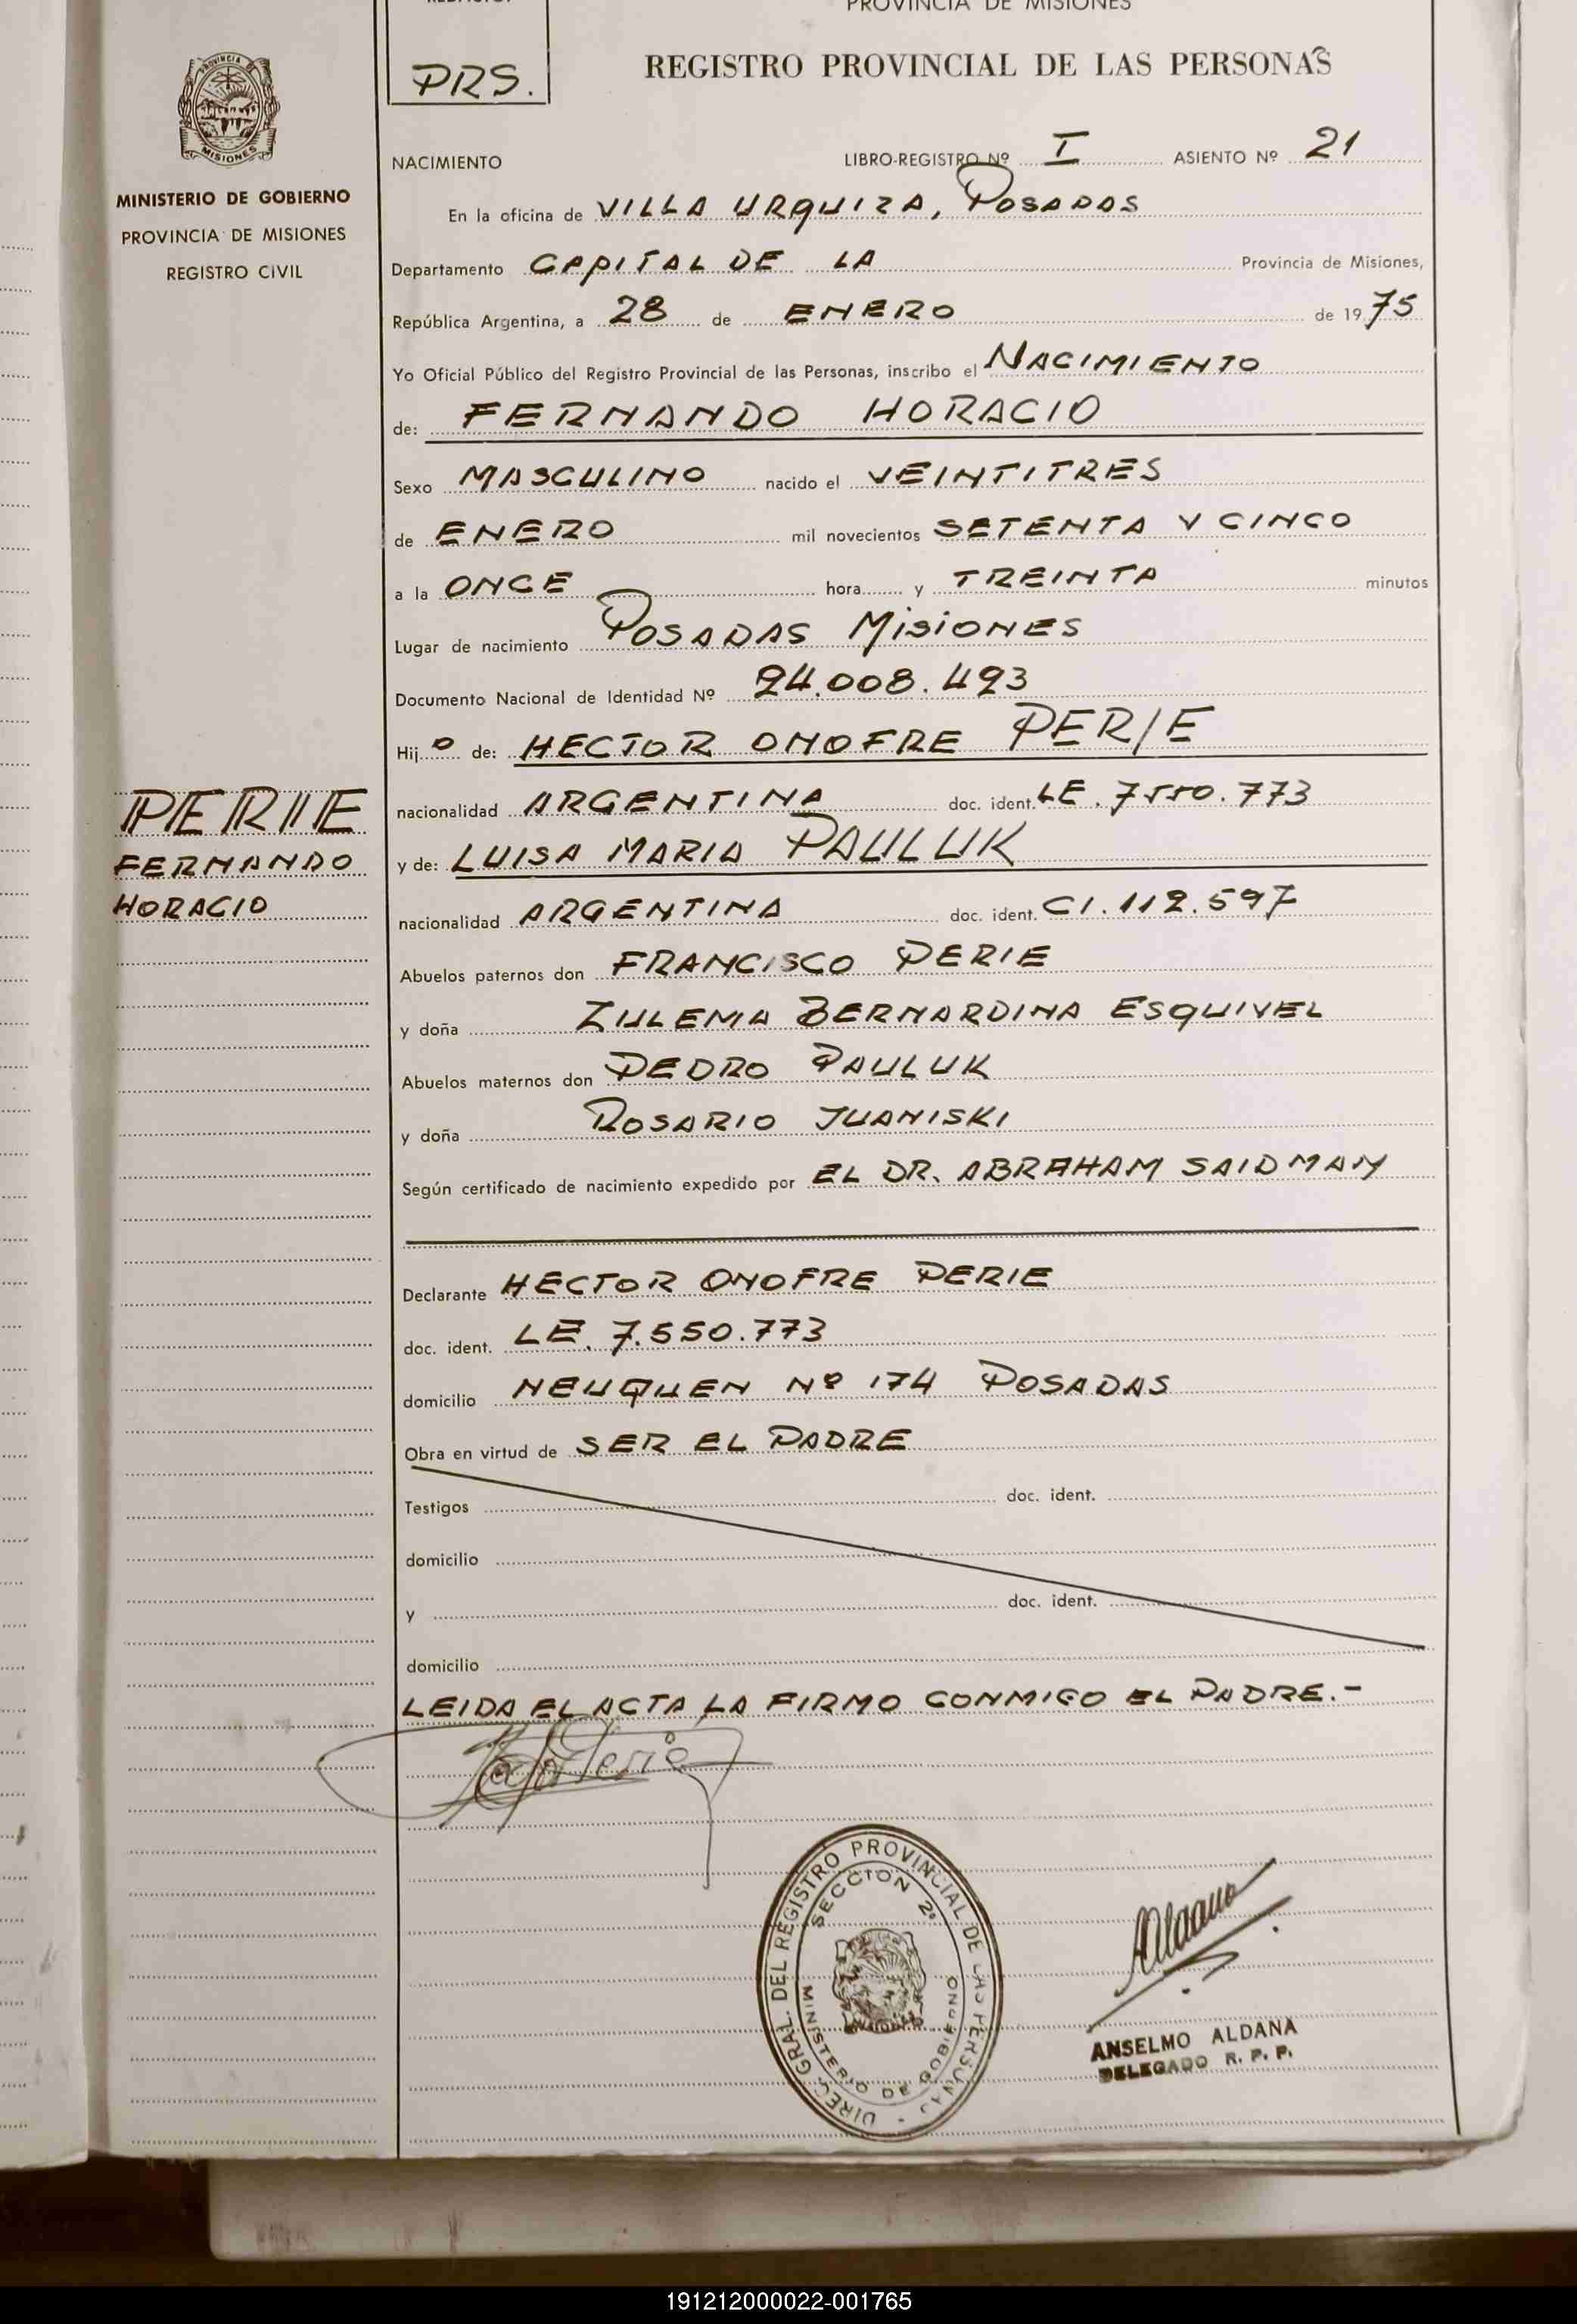 PROVINCIA DE MISIONES
PRS.
REGISTRO PROVINCIAL DE LAS PERSONAS
PROVINCIA DE
MISIONES
MINISTERIO DE GOBIERNO
PROVINCIA DE MISIONES
REGISTRO CIVIL
NACIMIENTO LIBRO-REGISTRO Nº I ASIENTO Nº 21
En la oficina de VILLA URQUIZA, POSADAS
Departamento CAPITAL DE LA Provincia de Misiones,
República Argentina, a 28 de ENERO de 1975
Yo Oficial Público del Registro Provincial de las Personas, inscribo el NACIMIENTO
de: FERNANDO HORACIO
Sexo MASCULINO nacido el VEINTITRES
de ENERO mil novecientos SETENTA Y CINCO
a la ONCE hora y TREINTA minutos
Lugar de nacimiento POSADAS MISIONES
Documento Nacional de Identidad Nº 24.008.493
Hijo de: HECTOR ONOFRE PERIE
PERIE
FERNANDO
HORACIO
nacionalidad ARGENTINA doc. ident. LE. 7550.773
y de: LUISA MARIA PAULUK
nacionalidad ARGENTINA doc. ident. CI. 112.597
Abuelos paternos don FRANCISCO PERIE
y doña ZULEMA BERNARDINA ESQUIVEL
Abuelos maternos don PEDRO PAULUK
y doña ROSARIO JUANISKI
Según certificado de nacimiento expedido por EL DR. ABRAHAM SAIDMAN
Declarante HECTOR ONOFRE PERIE
doc. ident. LE. 7.550.773
domicilio NEUQUEN Nº 174 POSADAS
Obra en virtud de SER EL PADRE
Testigos doc. ident.
domicilio
y doc. ident.
domicilio
LEIDA EL ACTA LA FIRMO CONMIGO EL PADRE.-
DIREC. GRAL. DEL REGISTRO PROVINCIAL DE LAS PERSONAS
SECCION 2ª
MINISTERIO DE GOBIERNO
Aldana
ANSELMO ALDANA
DELEGADO R. P. P.
191212000022-001765